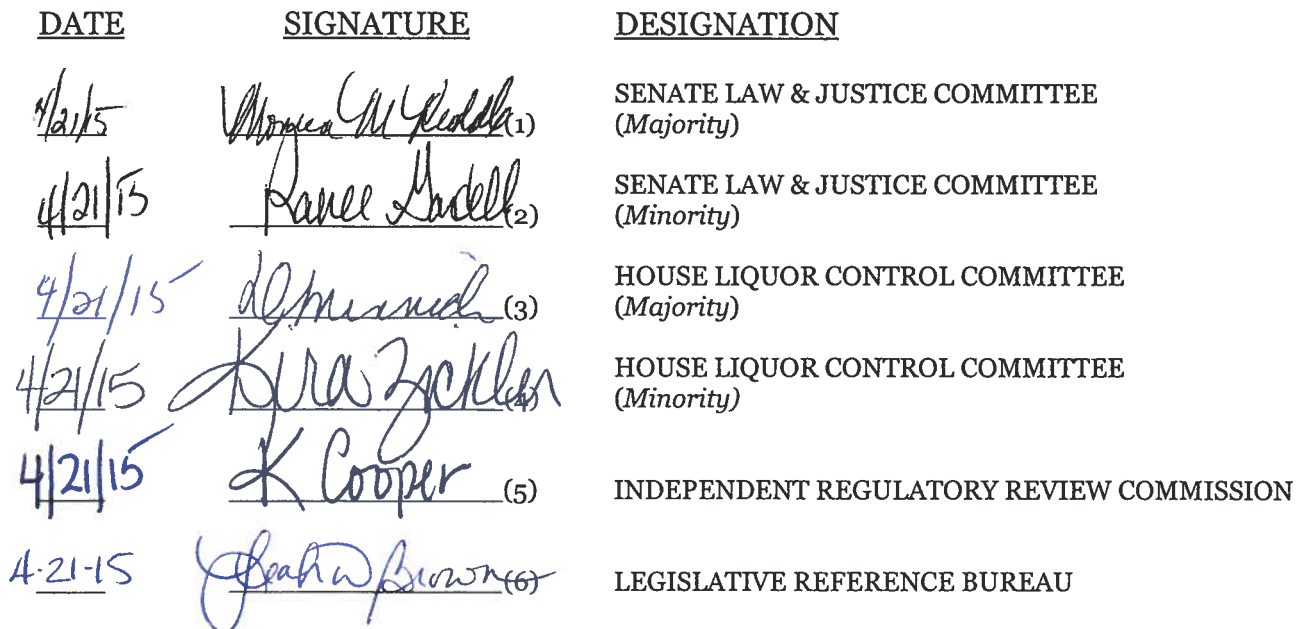 DATE SIGNATURE DESIGNATION
4/21/15 (1) SENATE LAW & JUSTICE COMMITTEE
(Majority)
4/21/15 (2) SENATE LAW & JUSTICE COMMITTEE
(Minority)
4/21/15 (3) HOUSE LIQUOR CONTROL COMMITTEE
(Majority)
4/21/15 Kira Zickler (4) HOUSE LIQUOR CONTROL COMMITTEE
(Minority)
4/21/15 K Cooper (5) INDEPENDENT REGULATORY REVIEW COMMISSION
4-21-15 Brown (6) LEGISLATIVE REFERENCE BUREAU